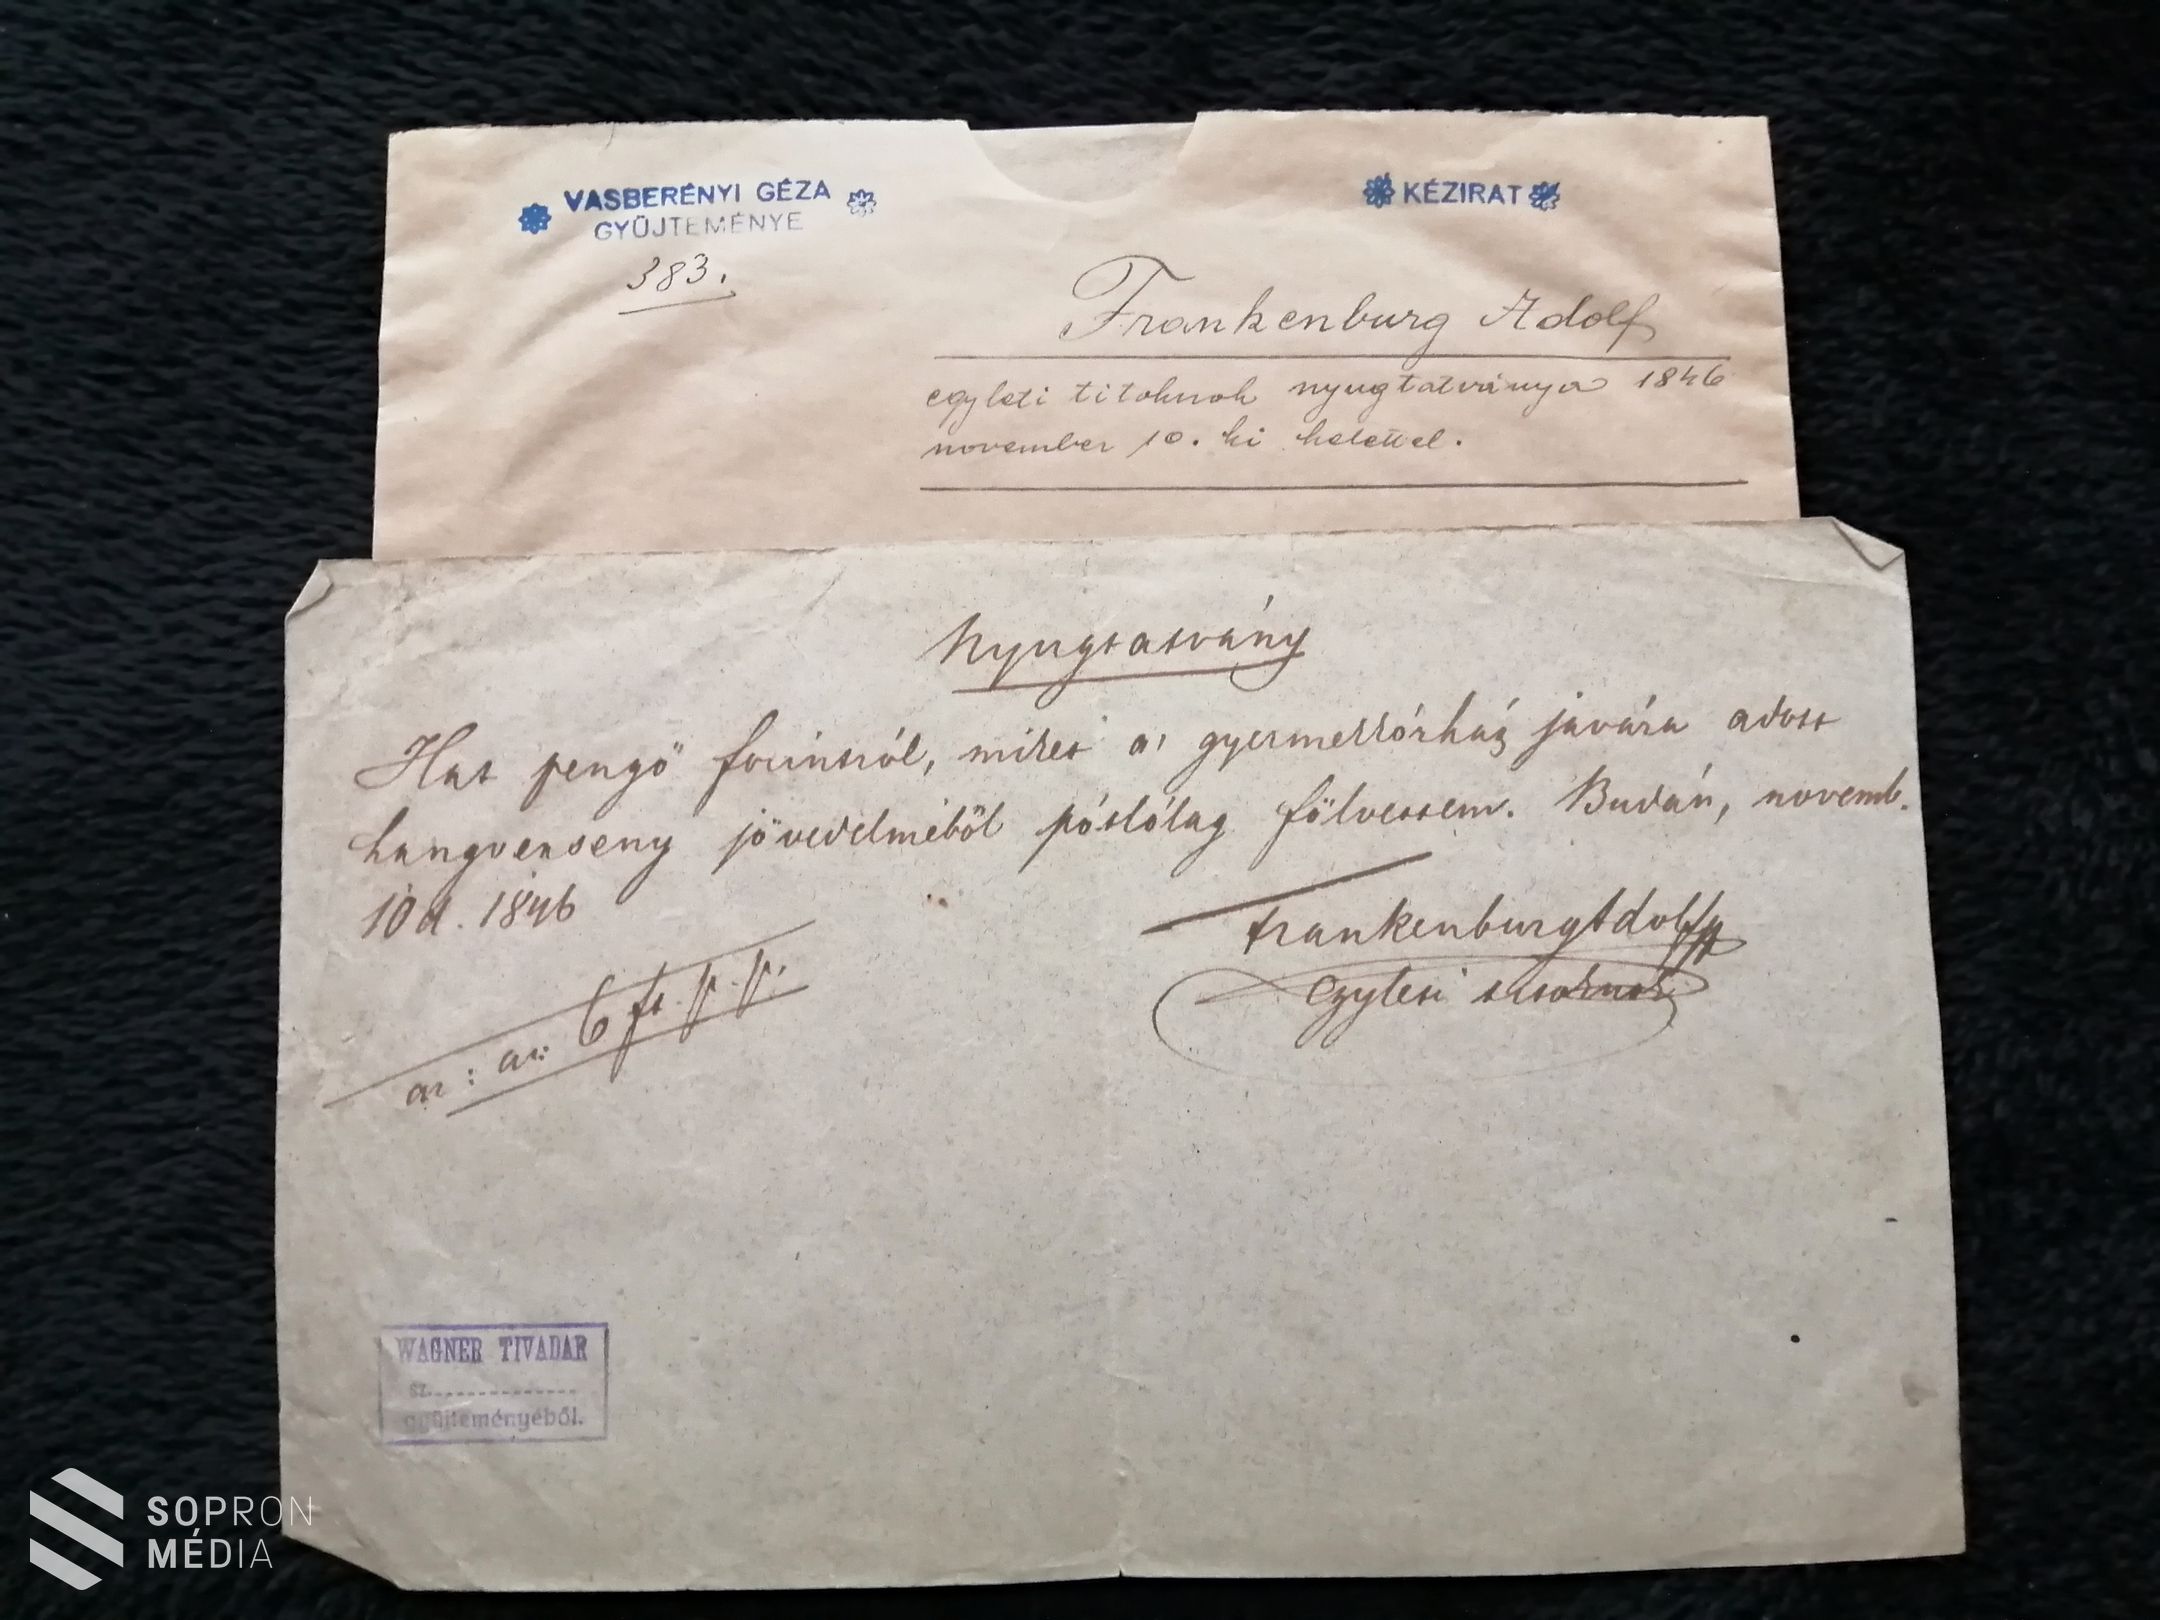 VASBERÉNYI GÉZA
GYŰJTEMÉNYE
383.
KÉZIRAT
Frankenburg Adolf
egyleti titoknok nyugtatványa 1846
november 10. ki kelettel.
Nyugtatvány
Hat pengő forintról, miket a' gyermekkórház javára adott
hangverseny jövedelméből pótlólag fölvettem. Budán, novemb.
10 d. 1846
Frankenburg Adolf
egyleti titoknok
az: az: 6 ft. p. p.
WAGNER TIVADAR
sz.
gyűjteményéből.
SOPRON
MÉDIA